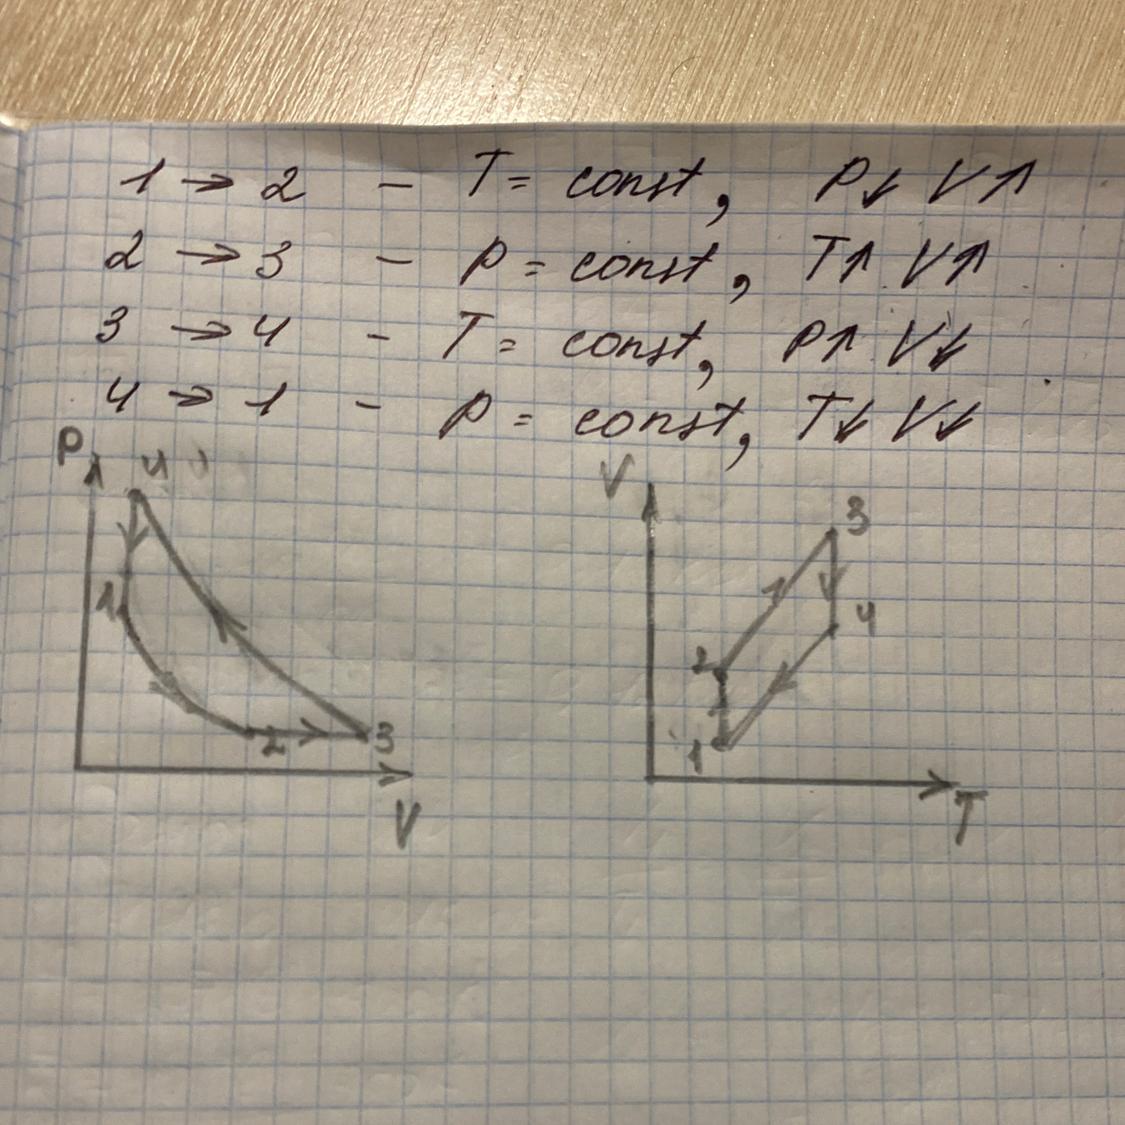 1 → 2 - T = const, P↓ V↑
2 → 3 - P = const, T↑ V↑
3 → 4 - T = const, P↑ V↓
4 → 1 - P = const, T↓ V↓
P
4
1
2
3
V
V
3
4
2
1
T